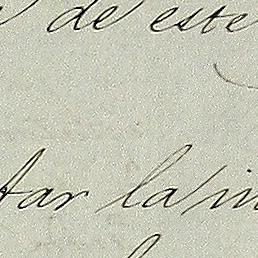 de este
tar la in